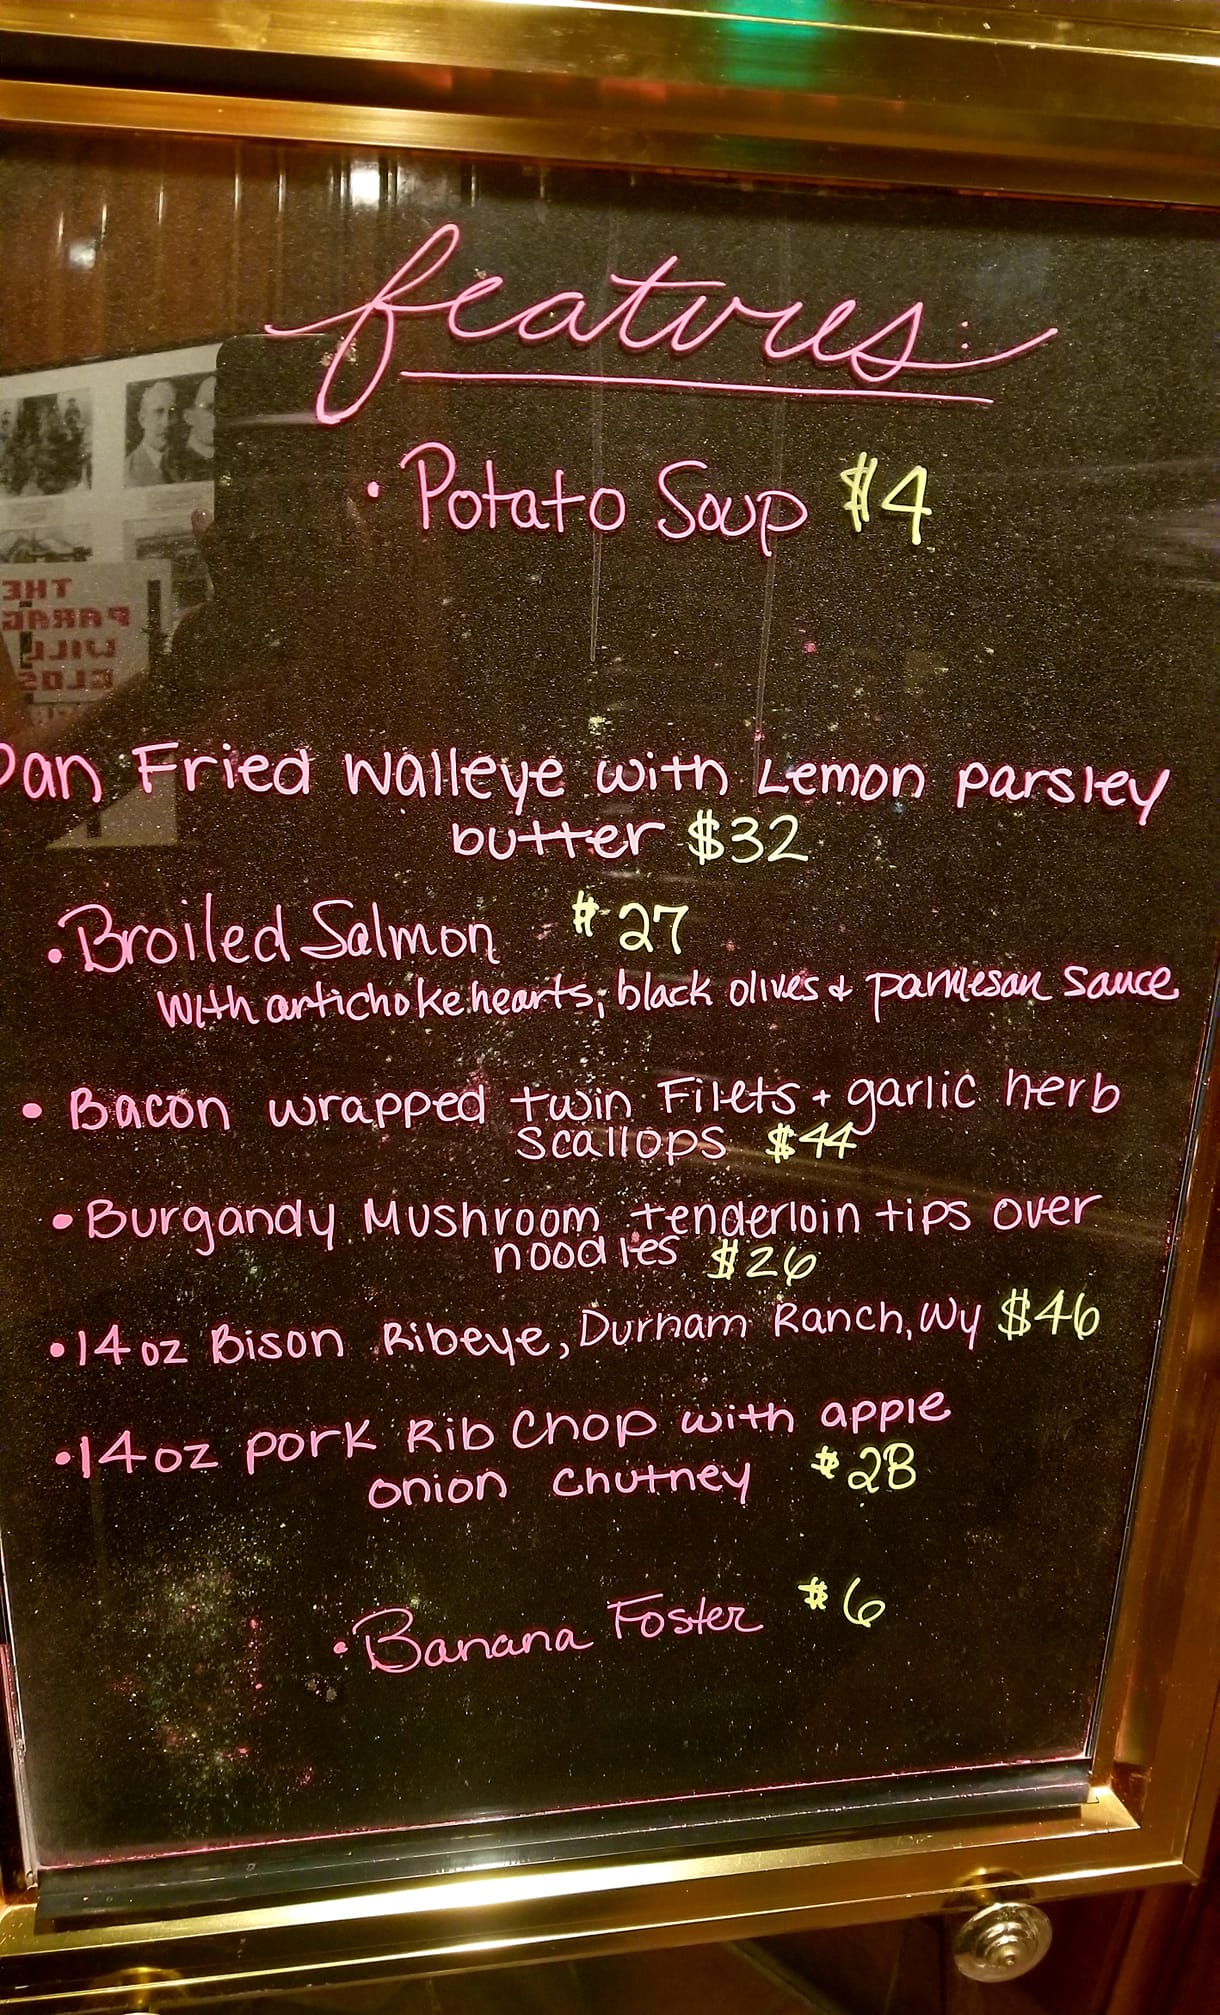 features:
• Potato Soup $4
Pan Fried Walleye with Lemon parsley
butter $32
• Broiled Salmon $27
with artichoke hearts, black olives + parmesan sauce
• Bacon wrapped twin Filets + garlic herb
scallops $44
• Burgandy Mushroom tenderloin tips over
noodles $26
• 14oz Bison Ribeye, Durham Ranch, Wy $46
• 14oz pork Rib Chop with apple
onion chutney $28
• Banana Foster $6
THE
WILL